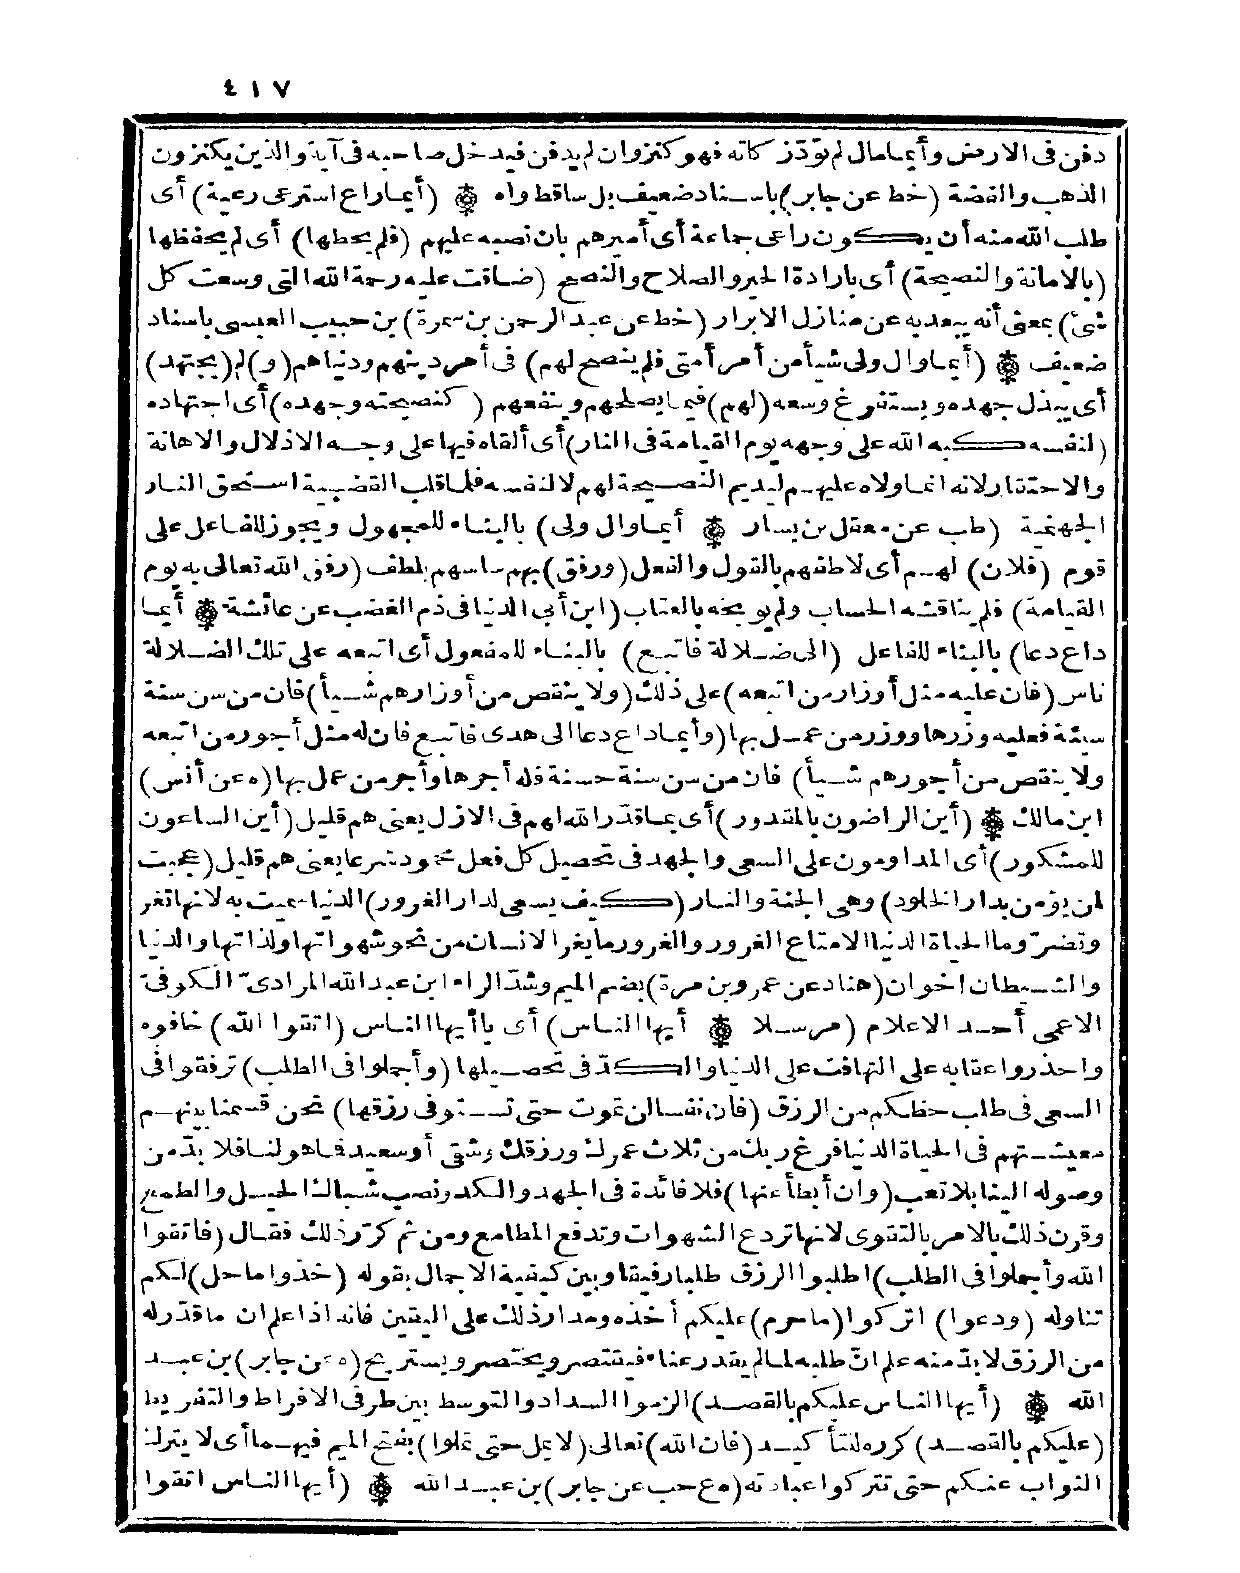 ٤١٧
دفن فى الارض وأيمامال لم تؤدّ زكاته فهو كنزوان لم يدفن فيدخل صاحبه فى آية والذين يكنزون
الذهب والفضة (خط عن جابر) باسناد ضعيف بل ساقط واه ۞ (أيماراع استرعى رعية) أى
طلب الله منه أن يكون راعى جماعة أى أميرهم بان نصبه عليهم (فلم يحطها) أى لم يحفظها
(بالامانة والنصيحة) أى بارادة الخير والصلاح والنصح (ضاقت عليه رحمة الله التى وسعت كل
شئ) بمعنى أنه يبعد به عن منازل الابرار (خط عن عبد الرحمن بن سمرة) بن حبيب العبسى باسناد
ضعيف ۞ (أيماوال ولى شيأ من أمر أمتى فلم ينصح لهم) فى أمر دينهم ودنياهم (و) لم (يجتهد)
أى يبذل جهده ويستفرغ وسعه (لهم) فيما يصلحهم وينفعهم (كنصيحته وجهده) أى اجتهاده
(لنفسه كبه الله على وجهه يوم القيامة فى النار) أى ألقاه فيها على وجه الاذلال والاهانة
والاحتقار لانه انما ولاه عليهم ليديم النصيحة لهم لا لنفسه فلما قلب القضية استحق النار
الجهنمية (طب عن معقل بن يسار ۞ أيماوال ولى) بالبناء للمجهول ويجوز للفاعل على
قوم (فلان) لهم أى لاطفهم بالقول والفعل (ورفق) بهم ساسهم بلطف (رفق الله تعالى به يوم
القيامة) فلم يناقشه الحساب ولم يوبخه بالعتاب (ابن أبى الدنيا فى ذم الغضب عن عائشة ۞ أيما
داع دعا) بالبناء للفاعل (الى ضلالة فاتبع) بالبناء للمفعول أى اتبعه على تلك الضلالة
ناس (فان عليه مثل أوزار من اتبعه) على ذلك (ولا ينقص من أوزارهم شيأ) فان من سن سنة
سيئة فعليه وزرها ووزر من عمل بها (وأيماداع دعا الى هدى فاتبع فان له مثل أجور من اتبعه
ولا ينقص من أجورهم شيأ) فان من سن سنة حسنة فله أجرها وأجر من عمل بها (ه عن أنس)
ابن مالك ۞ (أين الراضون بالمقدور) أى بما قدّر الله لهم فى الازل يعنى هم قليل (أين الساعون
للمشكور) أى المداومون على السعى والجهد فى تحصيل كل فعل محمود شرعا يعنى هم قليل (عجبت
لمن يؤمن بدار الخلود) وهى الجنة والنار (كيف يسعى لدار الغرور) الدنيا سميت به لانها تغر
وتضرّ وما الحياة الدنيا الا متاع الغرور والغرور ما يغر الانسان من نحو شهواتها ولذاتها والدنيا
والشيطان اخوان (هناد عن عمرو بن مرة) بضم الميم وشدّ الراء ابن عبد الله المرادىّ الكوفىّ
الاعمى أحد الاعلام (مرسلا ۞ أيها الناس) أى ياأيها الناس (اتقوا الله) خافوه
واحذروا عقابه على التهافت على الدنيا والكدّ فى تحصيلها (وأجملوا فى الطلب) ترفقوا فى
السعى فى طلب حظكم من الرزق (فان نفسا لن تموت حتى تستوفى رزقها) نحن قسمنا بينهم
معيشتهم فى الحياة الدنيا فرغ ربك من ثلاث عمرك ورزقك وشقى أو سعيد فما هو لنا فلا بدّ من
وصوله الينا بلا تعب (وان أبطأ عنها) فلا فائدة فى الجهد والكد ونصب شباك الحيل والطمع
وقرن ذلك بالامر بالتقوى لانها تردع الشهوات وتدفع المطامع ومن ثم كرّر ذلك فقال (فاتقوا
الله وأجملوا فى الطلب) اطلبوا الرزق طلبا رفيقا وبين كيفية الاجمال بقوله (خذوا ما حل) لكم
تناوله (ودعوا) اتركوا (ما حرم) عليكم أخذه ومدار ذلك على اليقين فانه اذا علم ان ما قدر له
من الرزق لا بدّ منه علم انّ طلبه لما لم يقدر عناء فيقتصر ويختصر ويستريح (ه عن جابر) بن عبد
الله ۞ (أيها الناس عليكم بالقصد) الزموا السداد والتوسط بين طرفى الافراط والتفريط
(عليكم بالقصد) كرره للتأكيد (فان الله) تعالى (لا يمل حتى تملوا) بفتح الميم فيهما أى لا يترك
الثواب عنكم حتى تتركوا عبادته (ه ع حب عن جابر) بن عبد الله ۞ (أيها الناس اتقوا